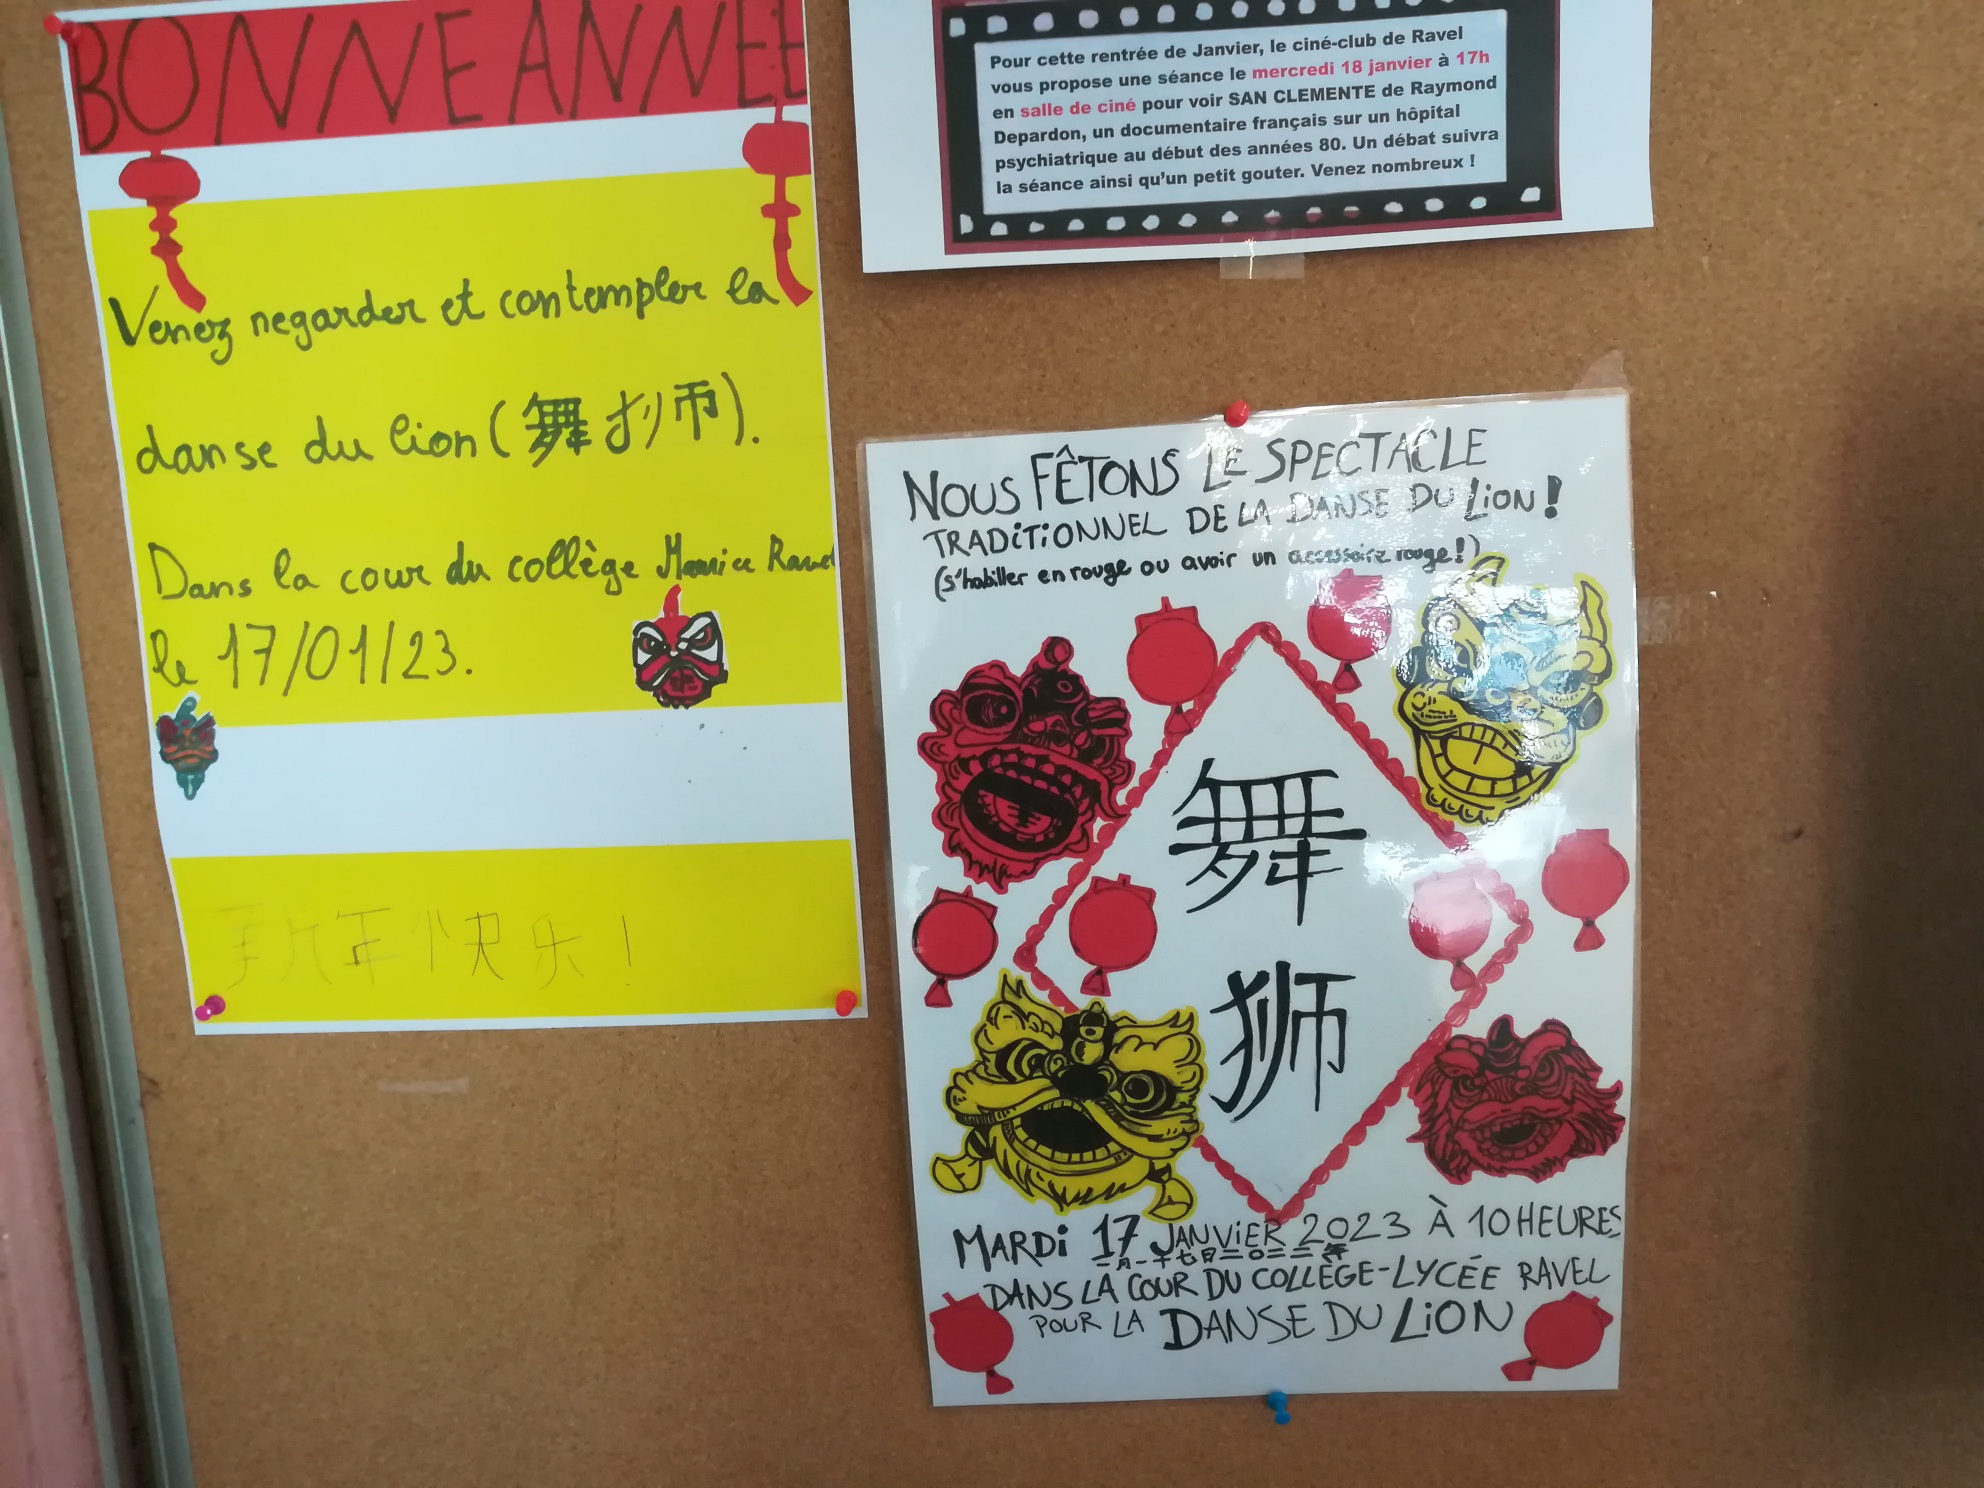 BONNE ANNÉE
Venez regarder et contempler la
danse du lion (舞狮).
Dans la cour du collège Maurice Ravel
le 17/01/23.
新年快乐!
Pour cette rentrée de Janvier, le ciné-club de Ravel
vous propose une séance le mercredi 18 janvier à 17h
en salle de ciné pour voir SAN CLEMENTE de Raymond
Depardon, un documentaire français sur un hôpital
psychiatrique au début des années 80. Un débat suivra
la séance ainsi qu'un petit gouter. Venez nombreux !
NOUS FÊTONS LE SPECTACLE
TRADITIONNEL DE LA DANSE DU LION!
(s'habiller en rouge ou avoir un accessoire rouge!)
舞
狮
MARDI 17 JANVIER 2023 À 10 HEURES
一月一十七日二〇二三年
DANS LA COUR DU COLLÈGE-LYCÉE RAVEL
POUR LA DANSE DU LION